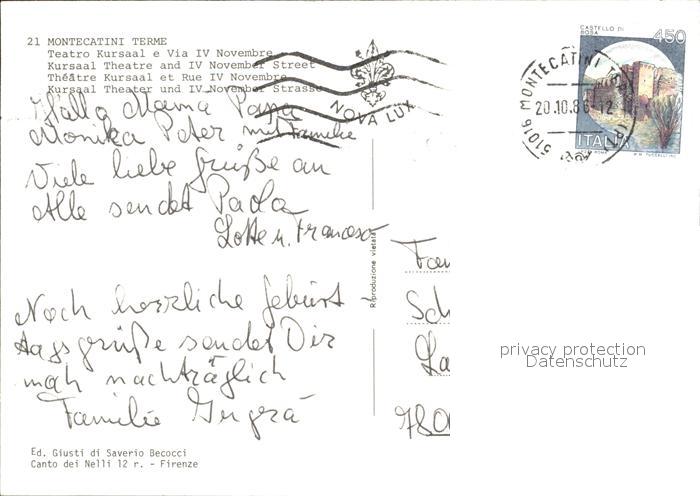 21 MONTECATINI TERME
Teatro Kursaal e Via IV Novembre
Kursaal Theatre and IV November Street
Théâtre Kursaal et Rue IV Novembre
Kursaal Theater und IV November Strasse
NOVA LUX
CASTELLO DI
BOSA
450
51016 MONTECATINI
20.10.86-12
ITALIA
Hallo Mama Papa
Monika Peter mit Familie
Viele liebe Grüße an
Alle sendet Paola
Lotte u. Francesco
Noch herzliche Geburt-
tagsgrüße sendet Dir
nachträglich
Familie
Riproduzione vietata
Fam
Sch
La
780
privacy protection
Datenschutz
Ed. Giusti di Saverio Becocci
Canto dei Nelli 12 r. - Firenze